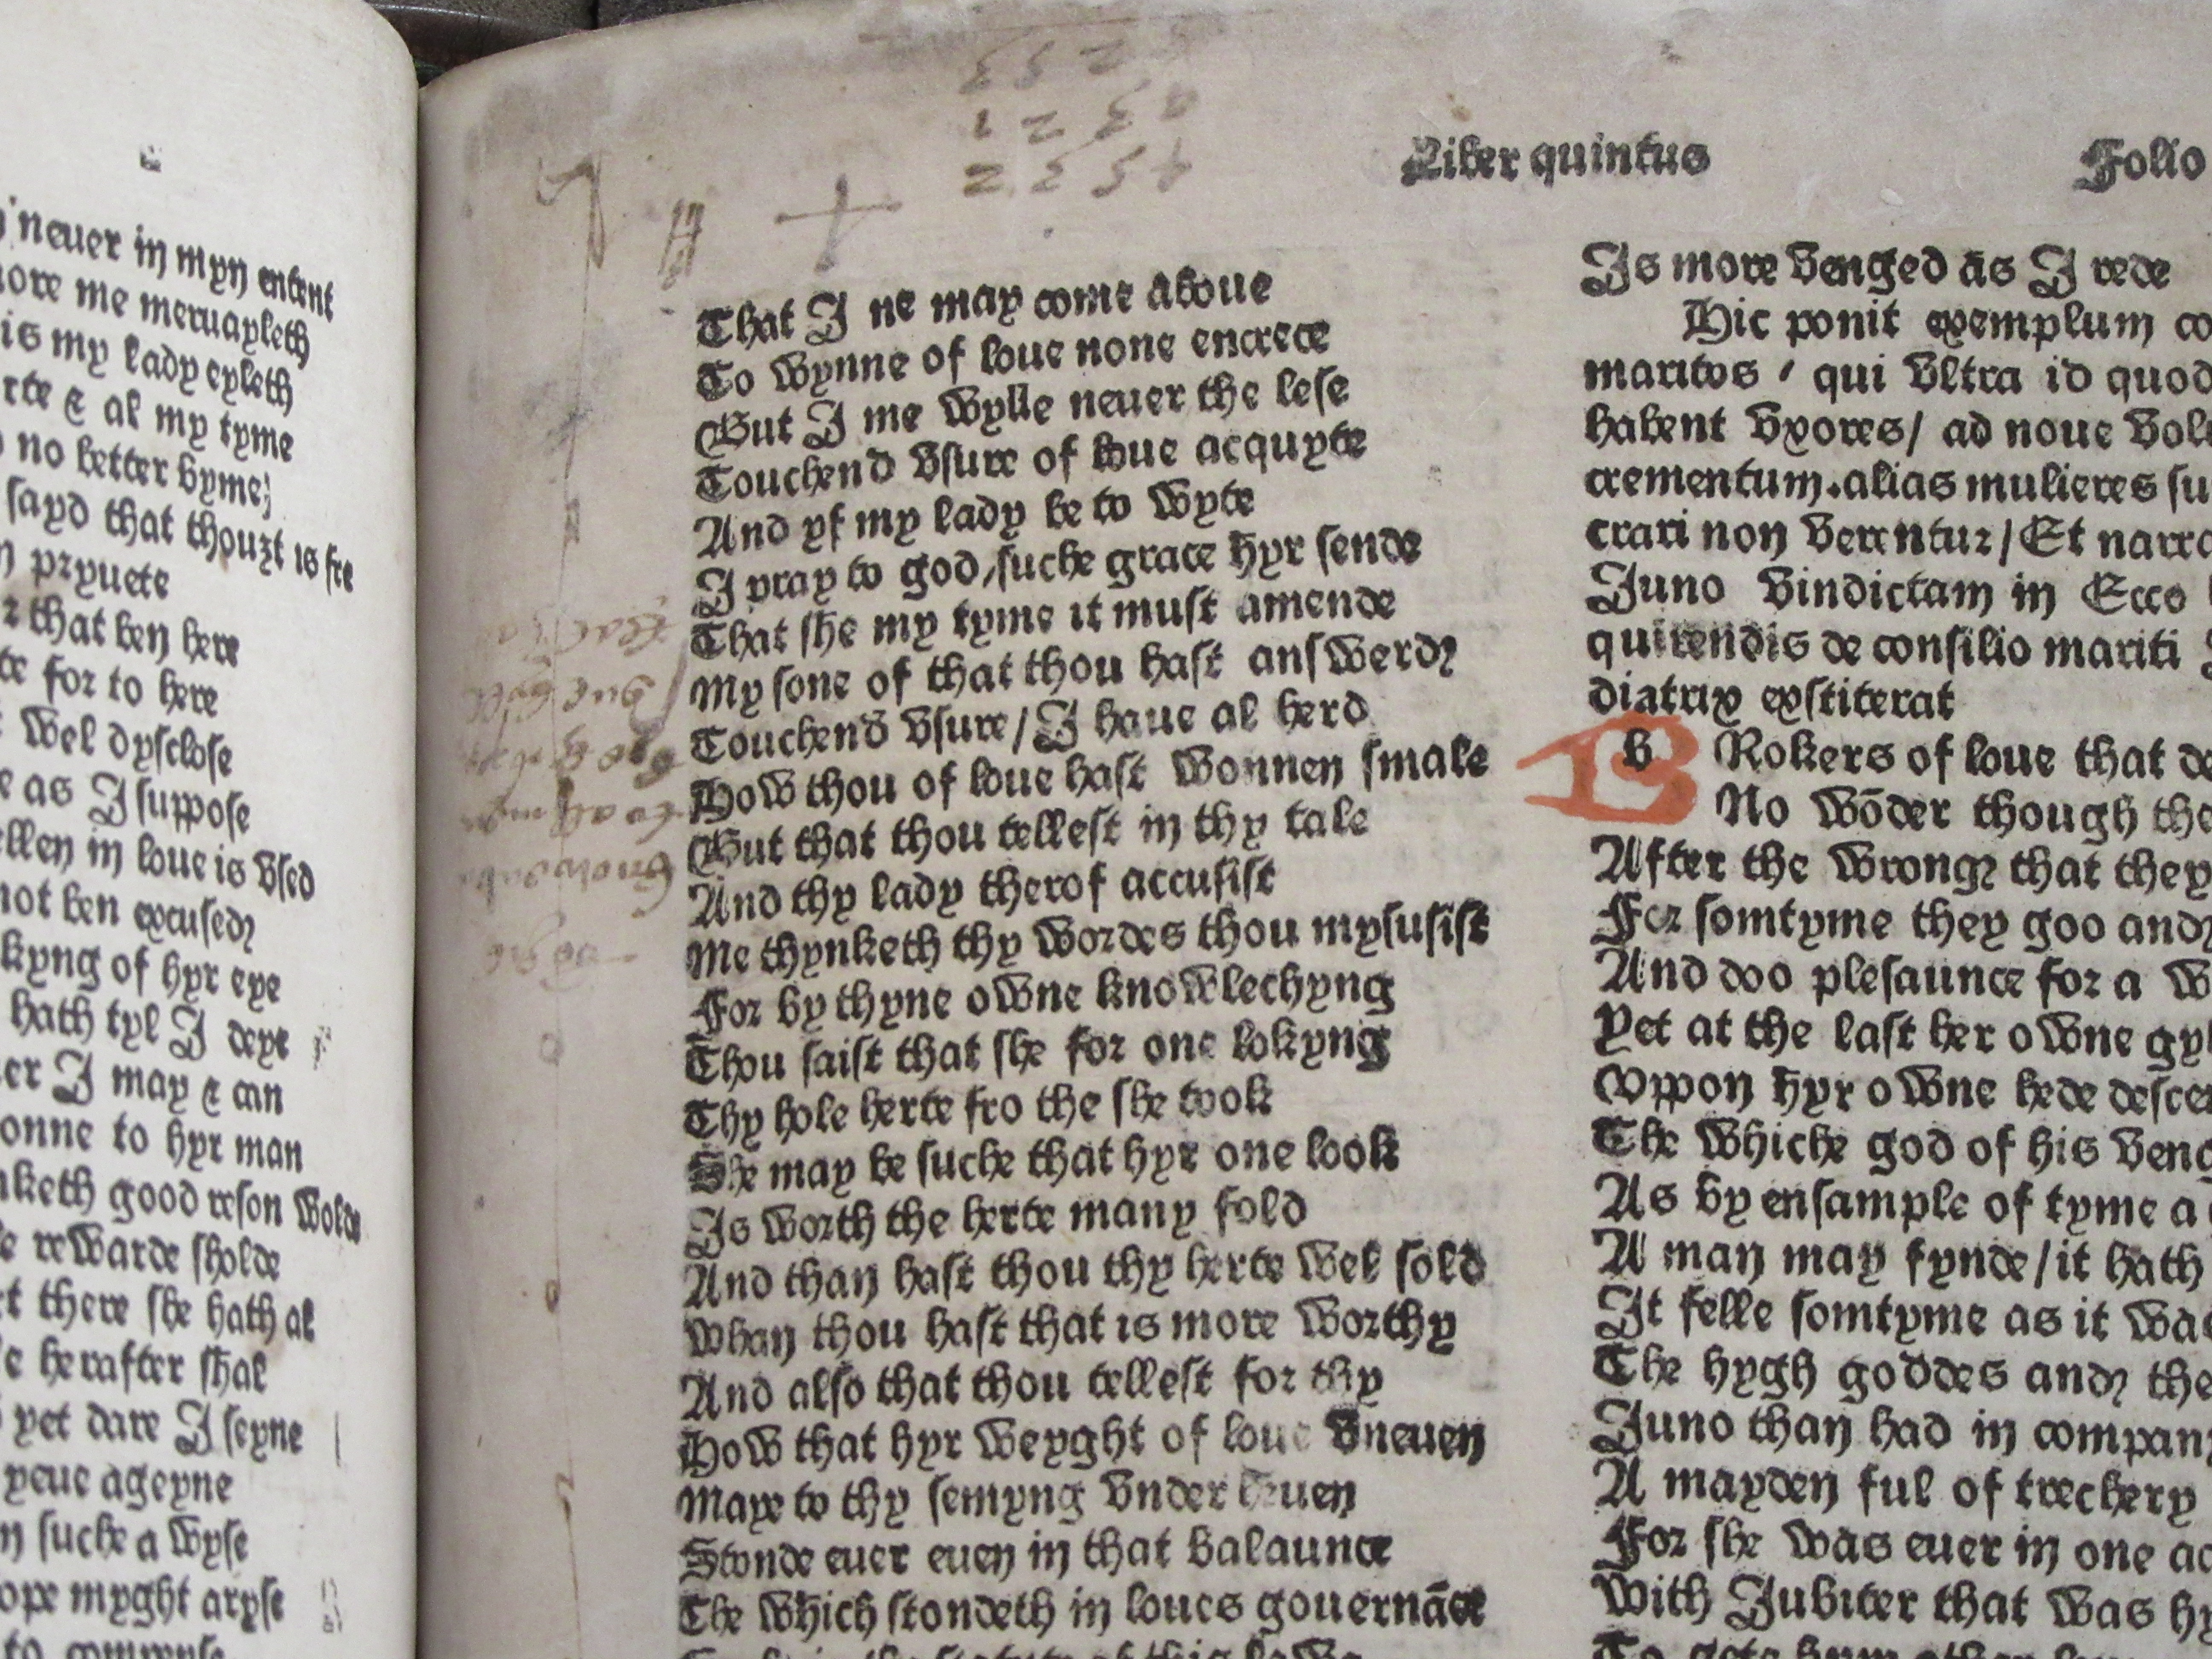 neuer in myn entent
ore me meruayleth
is my lady eyleth
rte & al my tyme
no better byme
sayd that thouzt is fre
pryuete
that ben here
te for to here
Wel dysclose
e as I suppose
ellen in loue is Vsed
not ben excused
kyng of hyr eye
hath tyl I deye
er I may & can
onne to hyr man
keth good reson Wolde
e reWarde sholde
t there she hath al
e herafter shal
yet dare I seyne
yeue ageyne
n suche a Wyse
ope myght aryse
Liber quintus
Folio
That I ne may come aboue
To Wynne of loue none encrece
But I me Wylle neuer the lese
Touchend Vsure of loue acquyte
And yf my lady be to Wyte
I pray to god, suche grace hyr sende
That she my tyme it must amende
My sone of that thou hast ansWerd
Touchend Vsure / I haue al herd
HoW thou of loue hast Wonnen smale
But that thou tellest in thy tale
And thy lady therof accusist
Me thynketh thy Wordes thou mysusist
For by thyne oWne knoWlechyng
Thou saist that she for one lokyng
Thy hole herte fro the she took
She may be suche that hyr one look
Is Worth the herte many fold
And than hast thou thy herte Wel sold
Whan thou hast that is more Worthy
And also that thou tellest for thy
HoW that hyr Weyght of loue Vneuen
Maye to thy semyng Vnder heuen
Stonde euer euen in that balaunce
The Which stondeth in loues gouernāce
Is more Venged as I rede
Hic ponit exemplum co
maritos / qui Vltra id quod
habent Vxores / ad noue Vol
crementum. alias mulieres su
crari non Verentur / Et narra
Juno Vindictam in Ecco
quirendis de consilio mariti
diatrix exstiterat
b Rokers of loue that de
No Wōder though the
After the Wrong that they
For somtyme they goo and
And doo plesaunce for a W
Yet at the last her oWne gy
Vppon hyr oWne hede desce
The Whiche god of his Veng
As by ensample of tyme a
A man may fynde / it hath
It felle somtyme as it Was
The hygh goddes and the
Juno than had in compan
A mayden ful of trechery
For she Was euer in one ac
With Jubiter that Was hy